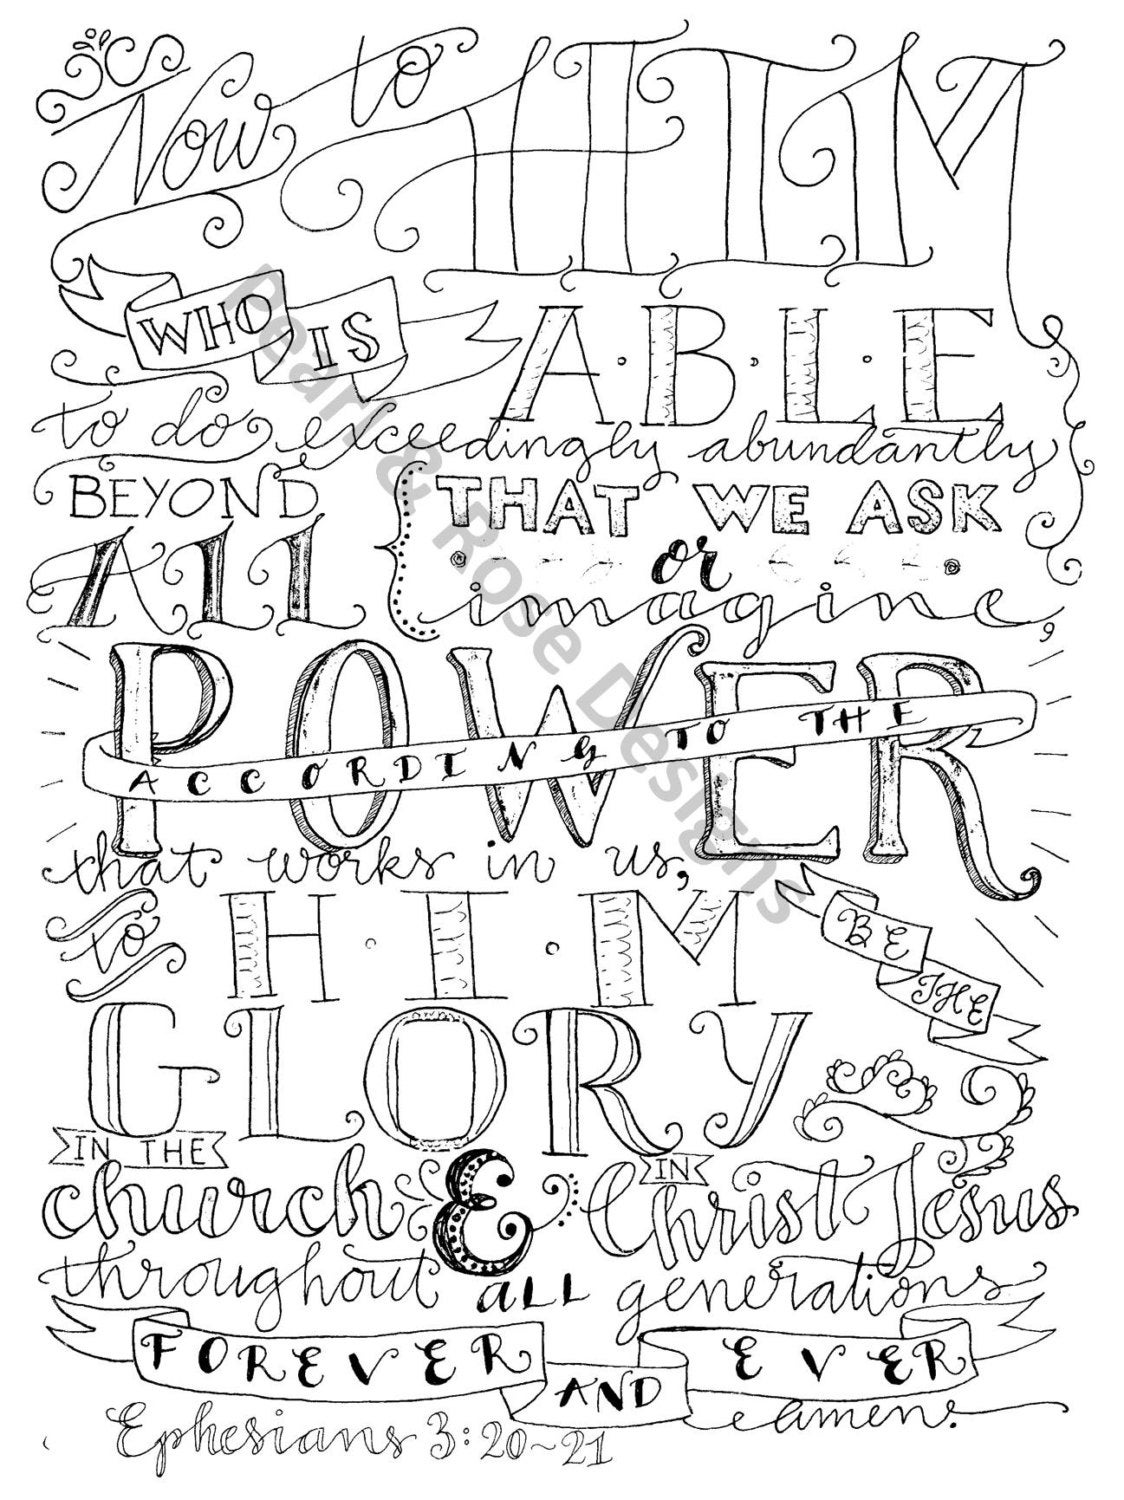 Now to HIM
WHO IS ABLE
to do exceedingly abundantly
BEYOND THAT WE ASK
ALL or
imagine,
POWER
ACCORDING TO THE
that works in us,
to HIM BE THE
GLORY
IN THE IN
church & Christ Jesus
throughout ALL generations
FOREVER AND EVER
amen.
Ephesians 3:20~21
Pearl & Rose Designs